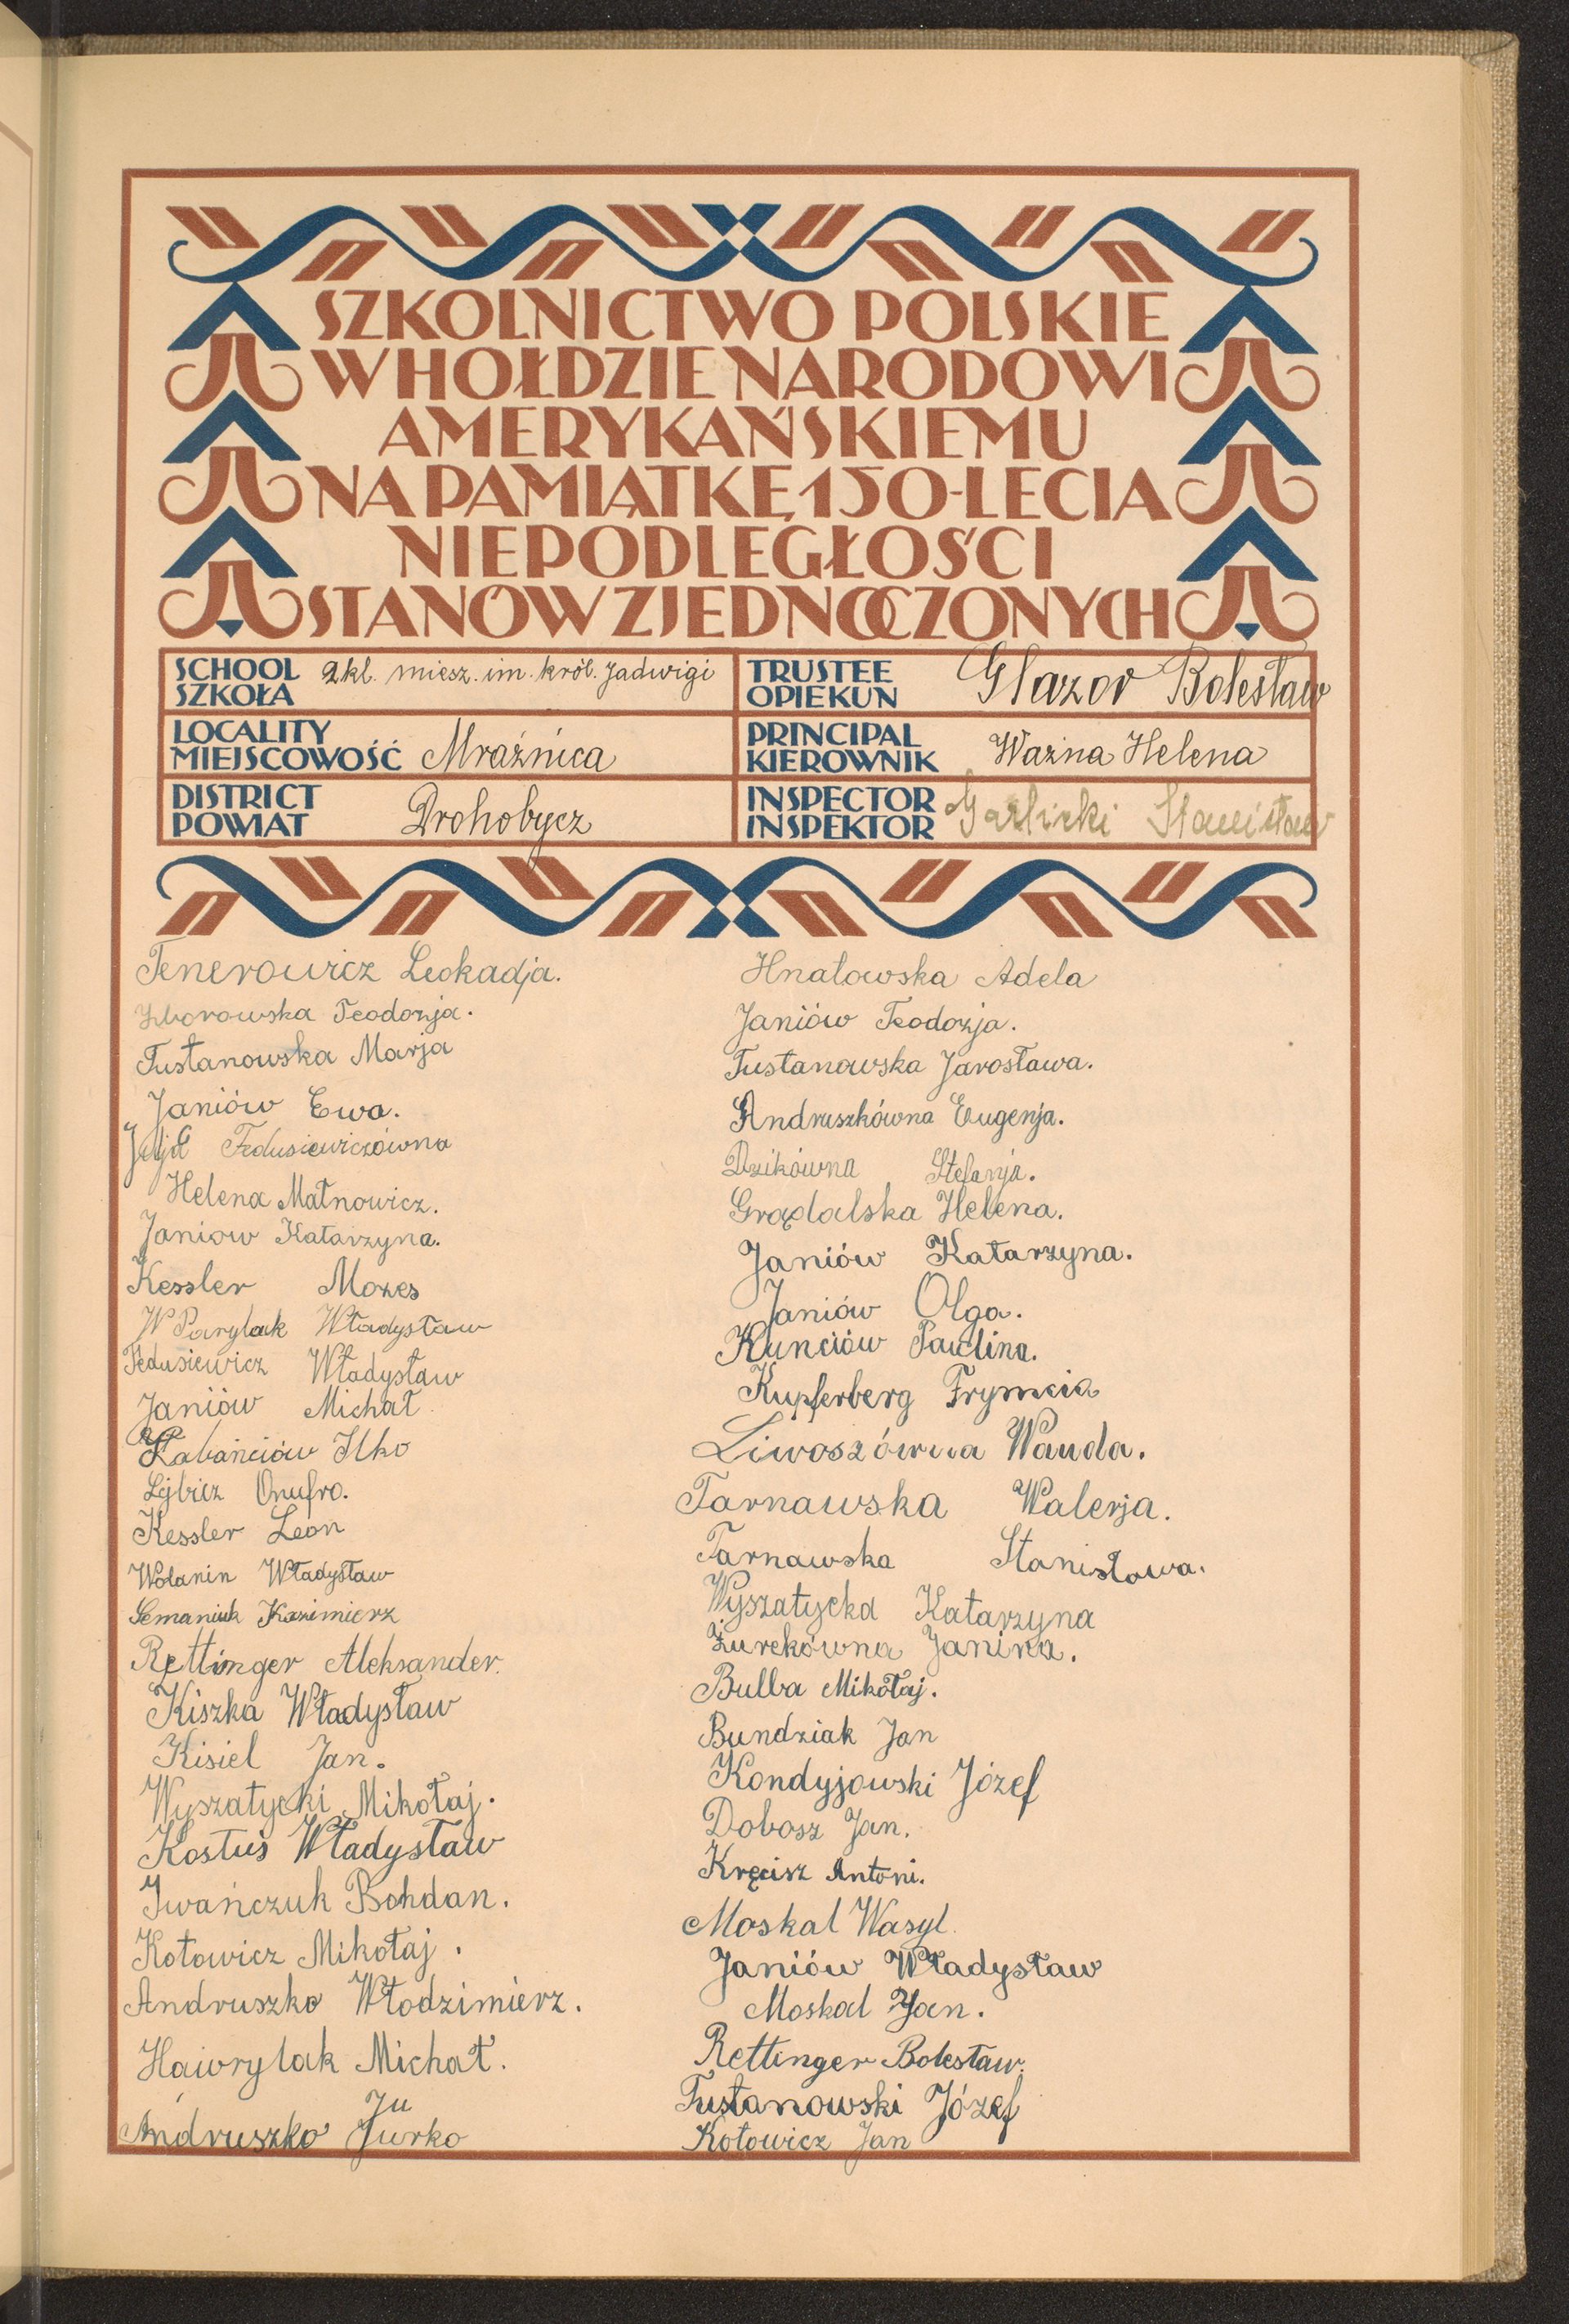 SZKOLNICTWO POLSKIE
W HOŁDZIE NARODOWI
AMERYKAŃSKIEMU
NA PAMIĄTKĘ 150-LECIA
NIEPODLEGŁOŚCI
STANÓW ZJEDNOCZONYCH
SCHOOL
SZKOŁA
2 kl. miesz. im. król. Jadwigi
TRUSTEE
OPIEKUN
Glazor Bolesław
LOCALITY
MIEJSCOWOŚĆ
Mraźnica
PRINCIPAL
KIEROWNIK
Ważna Helena
DISTRICT
POWIAT
Drohobycz
INSPECTOR
INSPEKTOR
Garlicki Stanisław
Tenerowicz Leokadja.
Teodozja.
Tustanowska Marja
Janiów Ewa.
Fedusiewiczówna
Helena Matnowicz.
Janiow Katarzyna.
Kessler Mozes
W Parylak Władysław
Fedusiewicz Władysław
Janiów Michał
Kabańciów Ilko
Onufro.
Kessler Leon
Wolanin Władysław
Semaniuk Kazimierz
Rettinger Aleksander.
Kiszka Władysław
Kisiel Jan.
Wyszatycki Mikołaj.
Kostuś Władysław
Iwańczuk Bohdan.
Kotowicz Mikołaj.
Andruszko Włodzimierz.
Hawrylak Michał.
Ju
Andruszko Jurko
Hnatowska Adela
Janiów Teodozja.
Tustanowska Jarosława.
Andruszkówna Eugenja.
Dzikówna Stefanja.
Grądalska Helena.
Janiów Katarzyna.
Janiów Olga.
Kunciów Paulina.
Kupferberg Frymcia
Liwoszówna Wanda.
Tarnawska Walerja.
Tarnawska Stanisława.
Wyszatycka Katarzyna
Żurekówna Janina.
Bulba Mikołaj.
Bundziak Jan
Kondyjowski Józef
Dobosz Jan.
Kręcisz Antoni.
Moskal Wasyl.
Janiów Władysław
Moskal Jan.
Rettinger Bolesław.
Tustanowski Józef
Kotowicz Jan